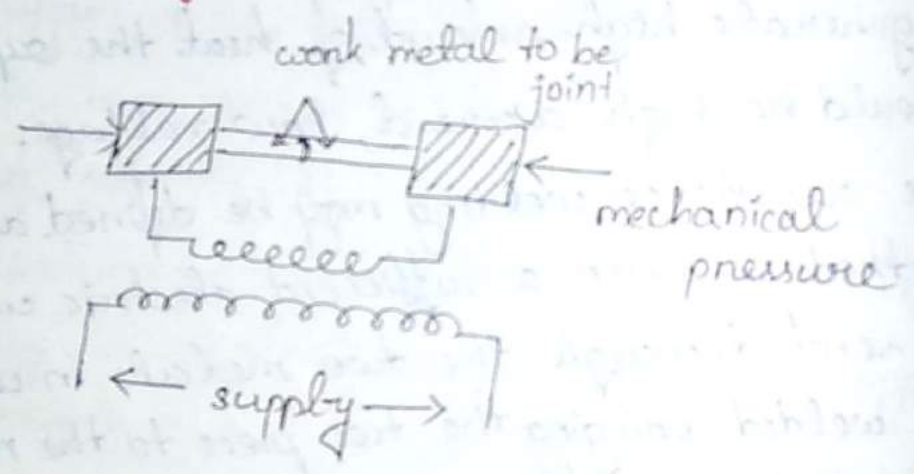 work metal to be
joint
mechanical
pressure
supply